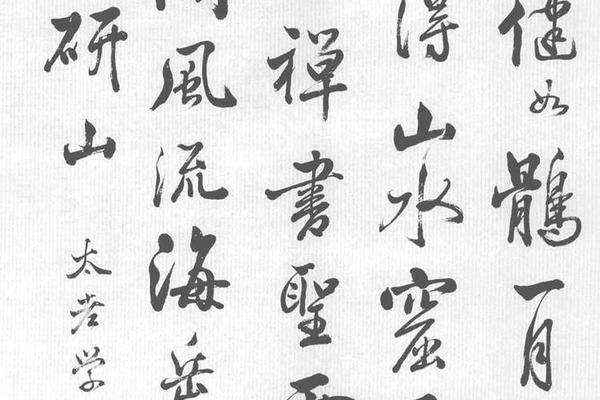 健如鶻一月
得山水窟
禪書聖
風流海岳
研山
太老学